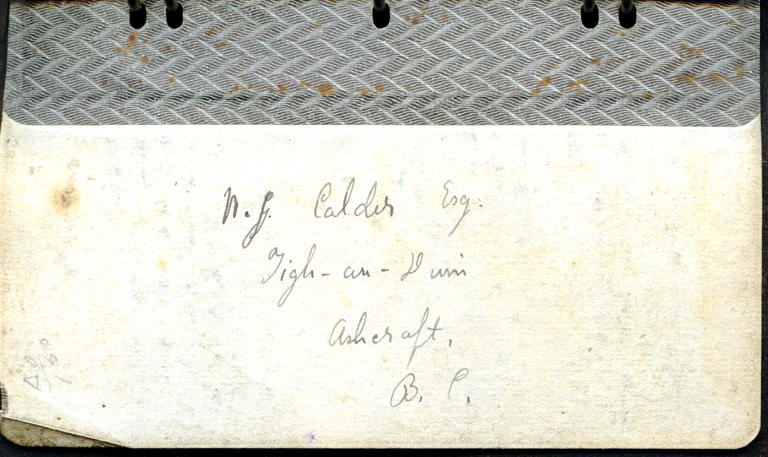 N. J. Calder Esq.
Tigh-an-Duin
Ashcraft,
B. C.